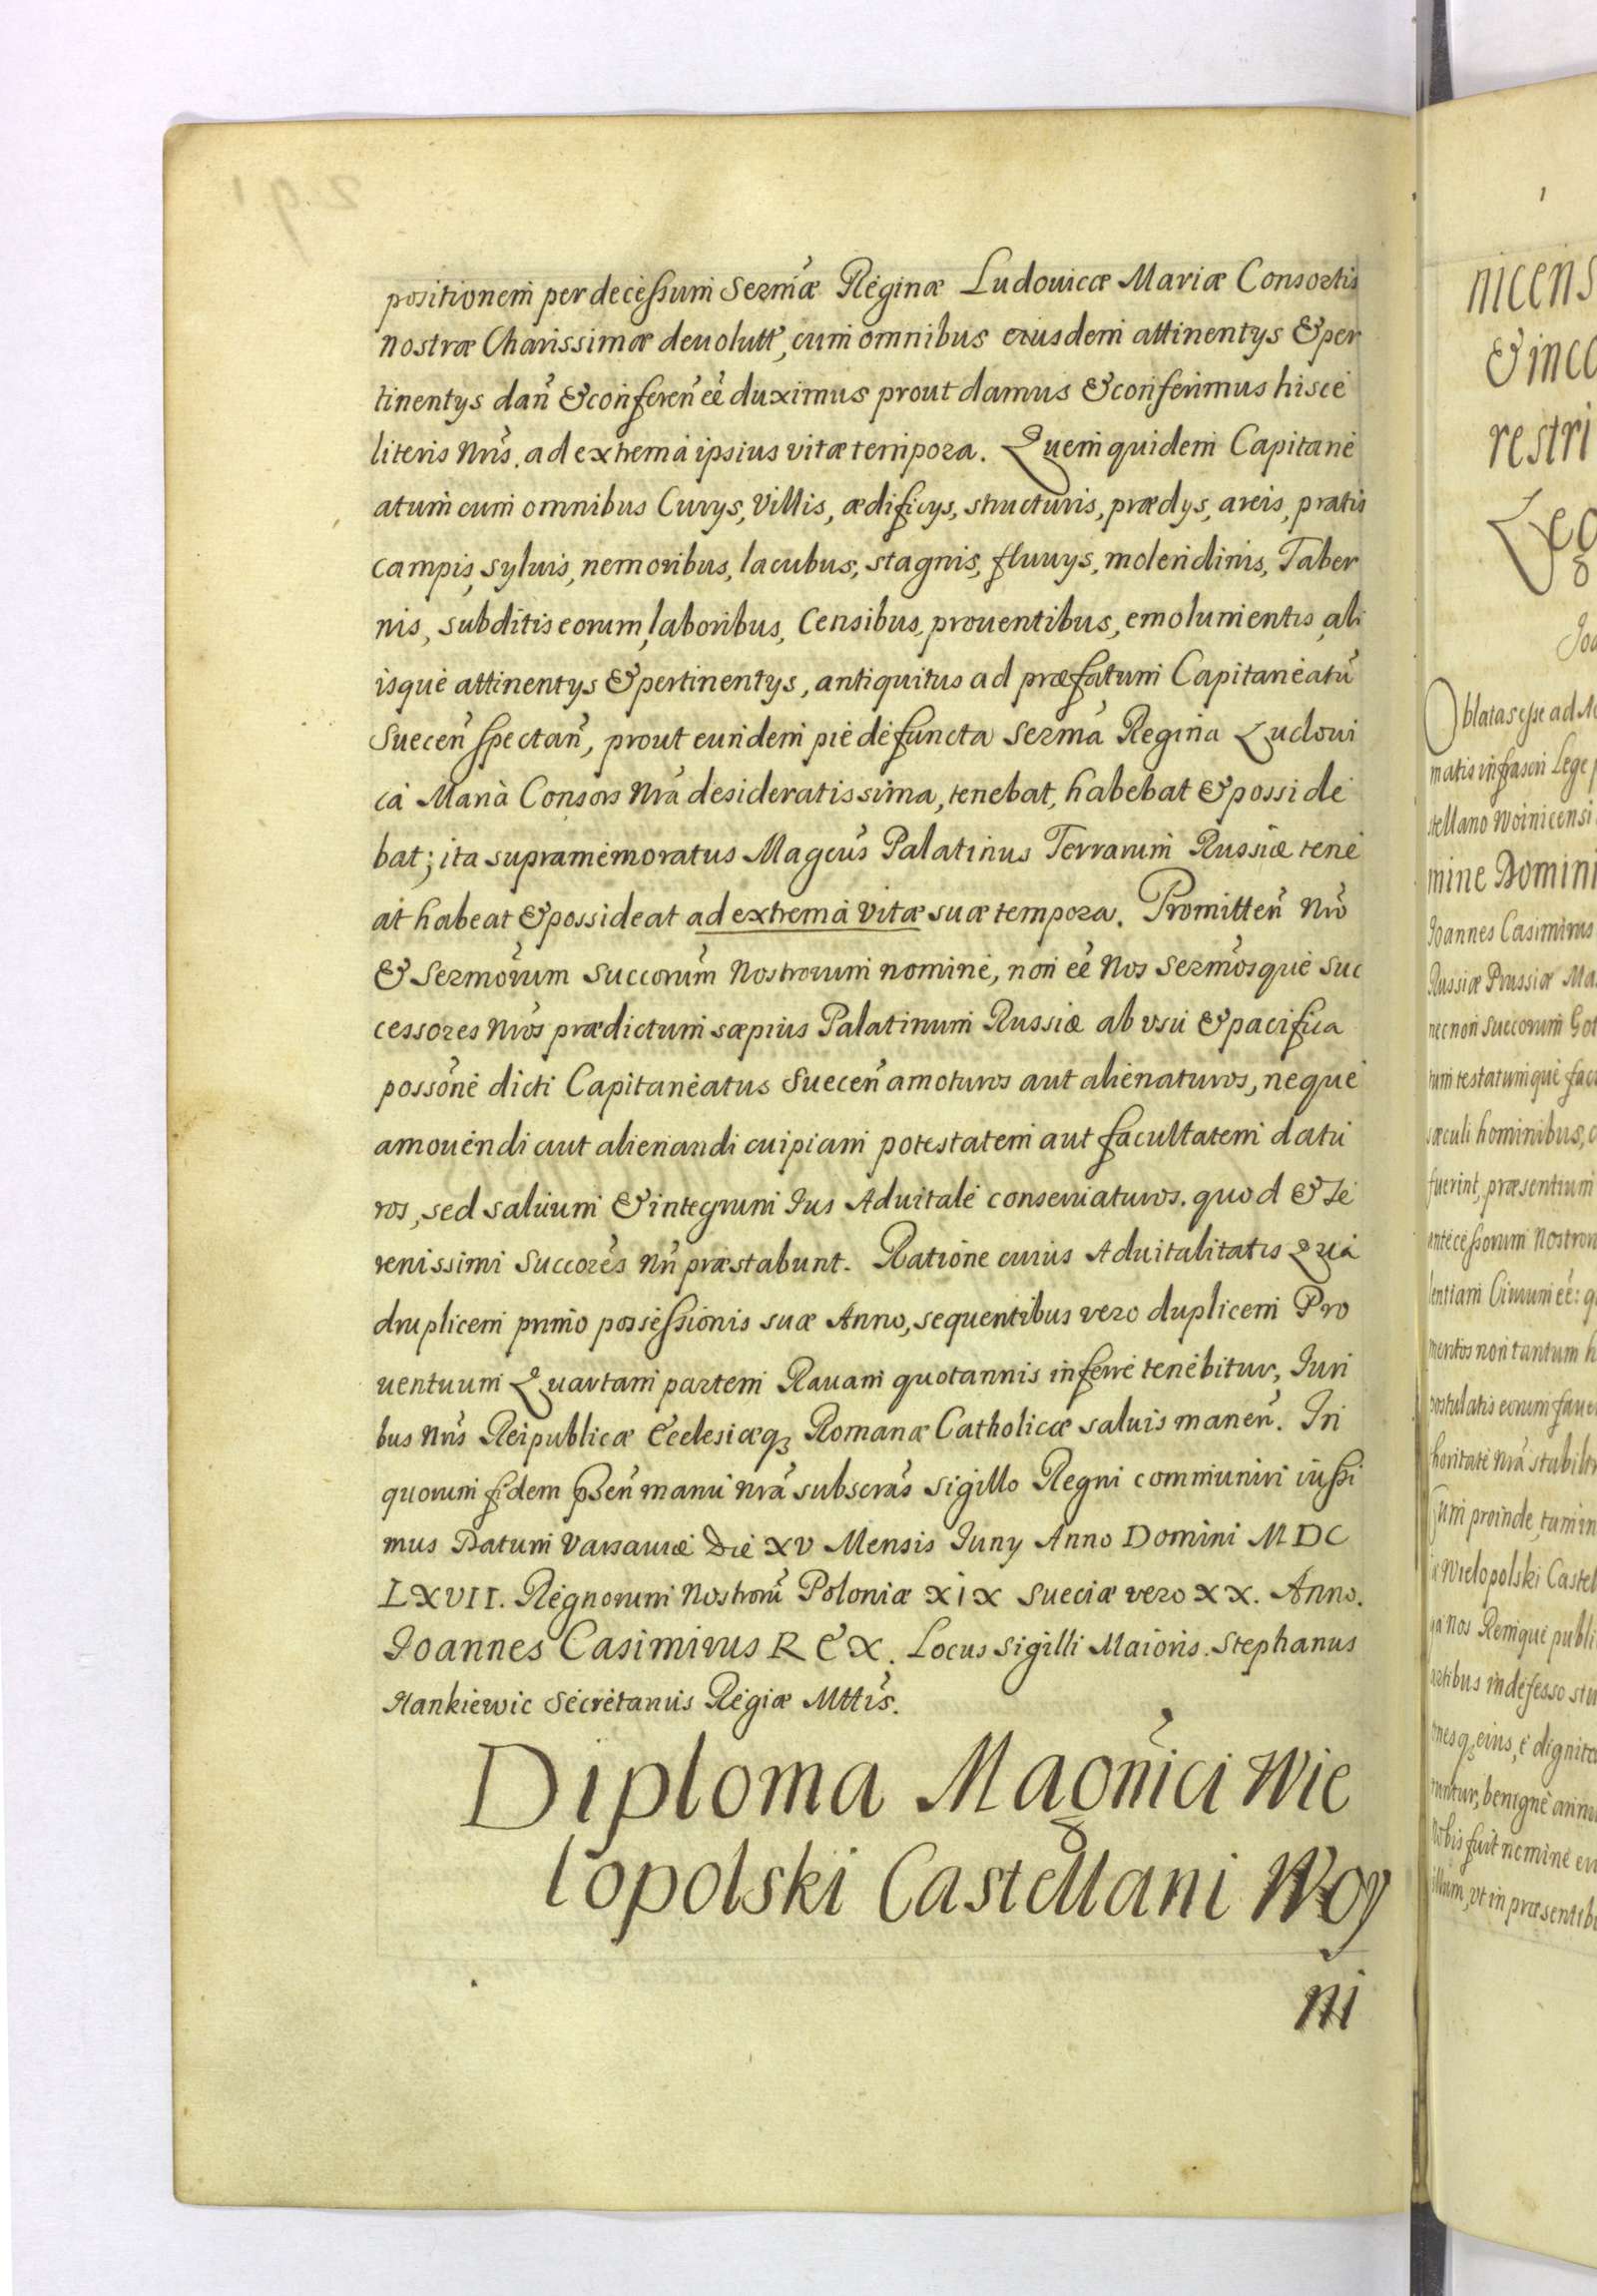 positionem per decessum Sermae Reginae Ludouicae Mariae Consortis
nostrae Charissimae deuolutt, cum omnibus eiusdem attinentys & per
tinentys dan̄ & conferen̄ eē duximus prout damus & conferimus hisce
literis nr̄is. ad extrema ipsius vitae tempora. Quem quidem Capitane
atum cum omnibus Curys, Villis, aedificys, structuris, praedys, areis, pratis
campis, syluis, nemoribus, lacubus, stagnis, fluuys, molendinis, Taber
nis, subditis eorum, laboribus, Censibus, prouentibus, emolumentis, ali
isque attinentys & pertinentys, antiquitus ad praefatum Capitaneatū
Suecen̄ spectan̄, prout eundem pie defuncta Serma Regina Ludoui
ca Maria Consors nr̄a desideratissima, tenebat, habebat & posside
bat; ita supramemoratus Magcus Palatinus Terrarum Russiae tene
at habeat & possideat ad extrema vitae suae tempora. Promitten̄ nr̄o
& Sermorum Succorum Nostrorum nomine, non eē Nos Sermosque Suc
cessores nr̄os praedictum saepius Palatinum Russiae ab vsu & pacifica
possōne dicti Capitaneatus Suecen̄ amoturos aut alienaturos, neque
amouendi aut alienandi cuipiam potestatem aut facultatem datu
ros, sed saluum & integrum Ius Aduitale conseruaturos. quod & Se
renissimi Succores nr̄i praestabunt. Ratione cuius Aduitalitatis Qua
druplicem primo possessionis suae Anno, sequentibus vero duplicem Pro
uentuum Quartam partem Rauam quotannis inferre tenebitur, Iuri
bus nr̄is Reipublicae Ecclesiaeq3 Romanae Catholicae saluis manen̄. In
quorum fidem p̄sen̄ manu nr̄a subscras sigillo Regni communiri iussi
mus Datum Varsauiae Die XV Mensis Iuny Anno Domini MDC
LXVII. Regnorum Nostrorū Poloniae XIX Sueciae vero XX. Anno.
Joannes Casimirus REX. Locus Sigilli Maioris. Stephanus
Hankiewic Secretarius Regiae Mttis.
Diploma Magn̄ici Wie
lopolski Castellani Woy
ni
nicens
& inco
restri
Oblatas esse ad
Lege
stellano Woinicensi
mine Domini
Joannes Casimirus
Russiae Prussiae Ma
necnon Succorum Got
tum testatumque fac
saeculi hominibus,
fuerint, praesentium
antecessorum Nostror
mentos non tantum h
postulatis eorum faue
horitate nr̄a stabilir
Cum proinde, tum in
Wielopolski Castel
nos Remque publi
indefesso stu
eius, e dignita
benigne annu
nobis fuit nomine
illum, vt in praesentib